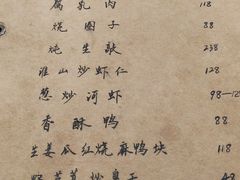 腐乳肉 118
烧圈子 88
炖生敲 238
淮山炒虾仁 128
葱炒河虾 98-12
香酥鸭 88
生姜瓜红烧麻鸭块 118
48